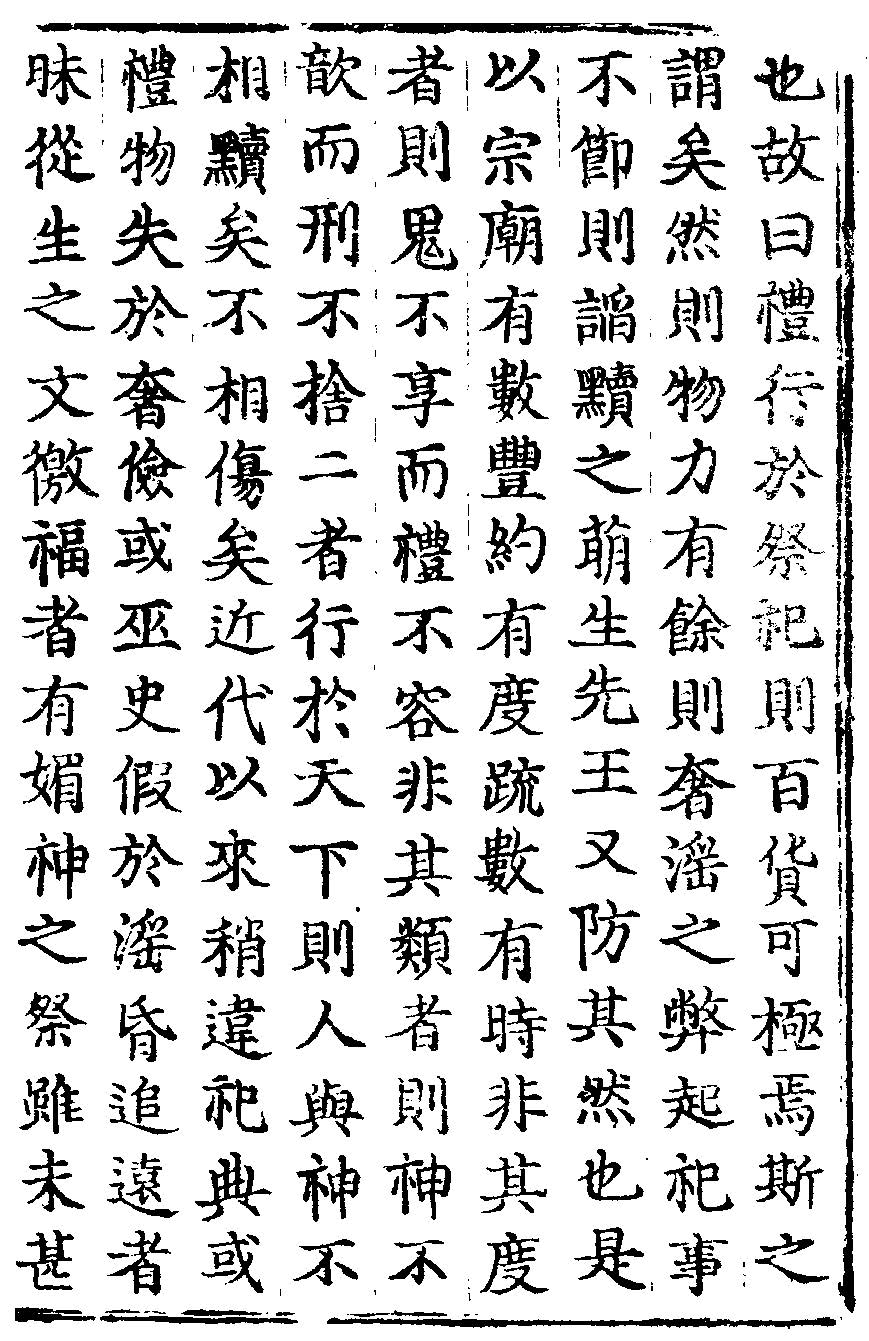 也故曰禮行於祭祀則百貨可極焉斯之
謂矣然則物力有餘則奢淫之弊起祀事
不節則諂黷之萌生先王又防其然也是
以宗廟有數豐約有度䟽數有時非其度
者則鬼不享而禮不容非其類者則神不
歆而刑不捨二者行於天下則人與神不
相黷矣不相傷矣近代以來稍違祀典或
禮物失於奢儉或巫史假於淫昏追遠者
昧從生之文徼福者有媚神之祭雖未甚